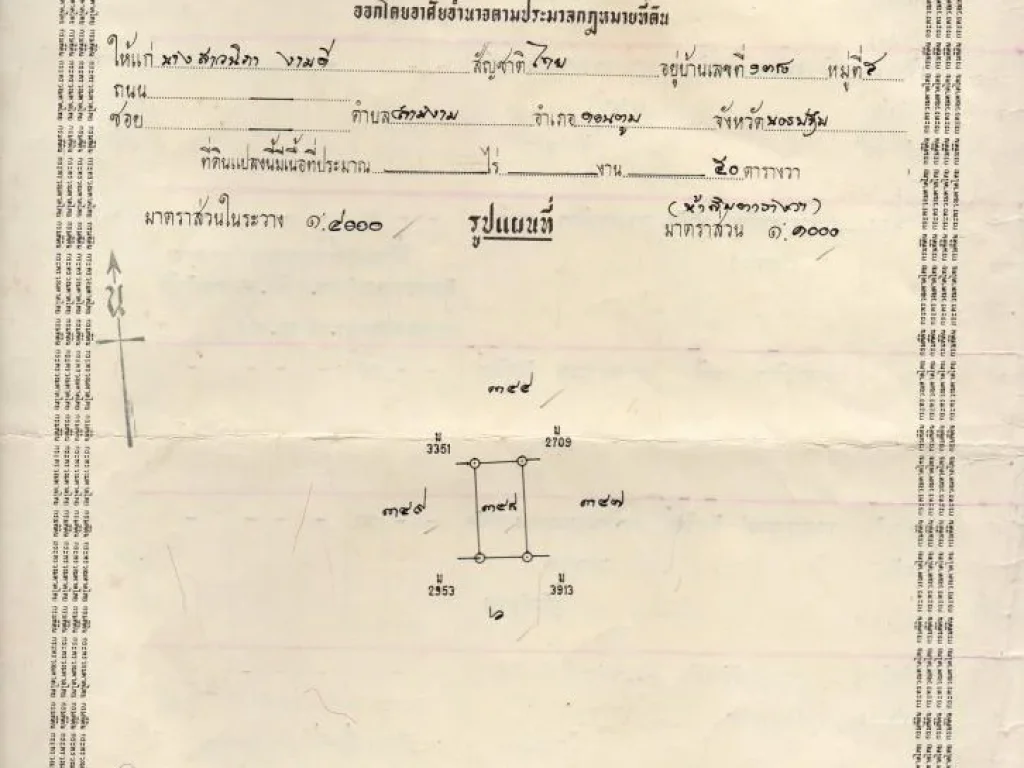 ออกโดยอาศัยอำนาจตามประมวลกฎหมายที่ดิน
ให้แก่ นางสาวนิภา งามดี สัญชาติ ไทย อยู่บ้านเลขที่ ๑๓๘ หมู่ที่
ถนน
ซอย ตำบล สามง่าม อำเภอ ดอนตูม จังหวัด นครปฐม
ที่ดินแปลงนี้มีเนื้อที่ประมาณ ไร่ งาน ๕๐ ตารางวา
(ห้าสิบตารางวา)
มาตราส่วนในระวาง ๑:๔๐๐๐ รูปแผนที่ มาตราส่วน ๑:๑๐๐๐
น
๓๔๔
น 3351 น 2709
๓๔๙ ๓๔๘ ๓๔๗
น 2953 น 3913
๖